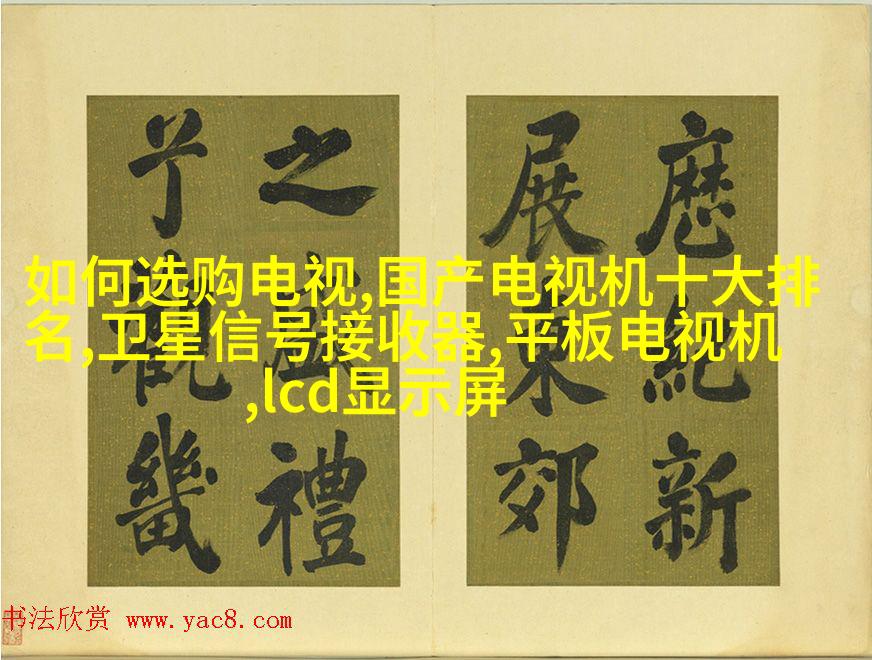 如何选购电视,国产电视机十大排
名,卫星信号接收器,平板电视机
,lcd显示屏
歷紀新
展東郊
之盛禮
觀畿
书法欣赏 www.yac8.com